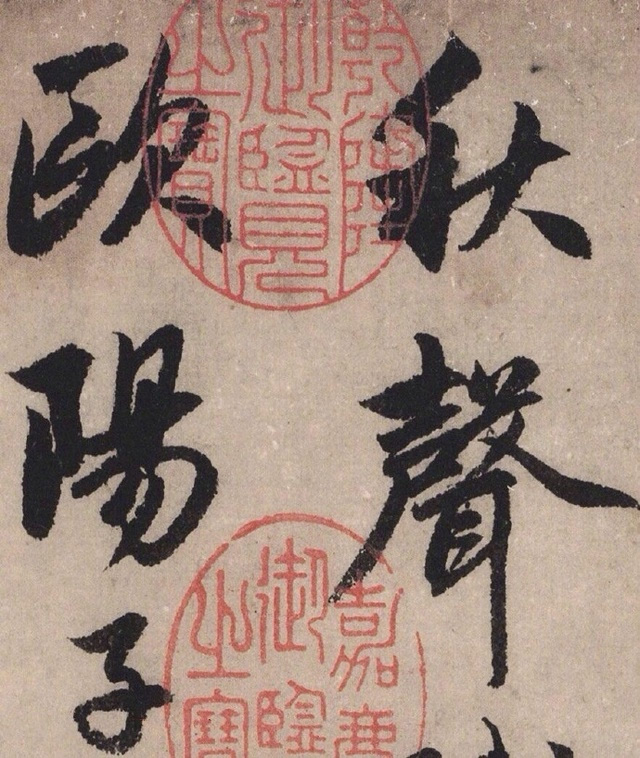 秋聲
歐陽子
乾隆
御覽
之寶
嘉慶
御覽
之寶